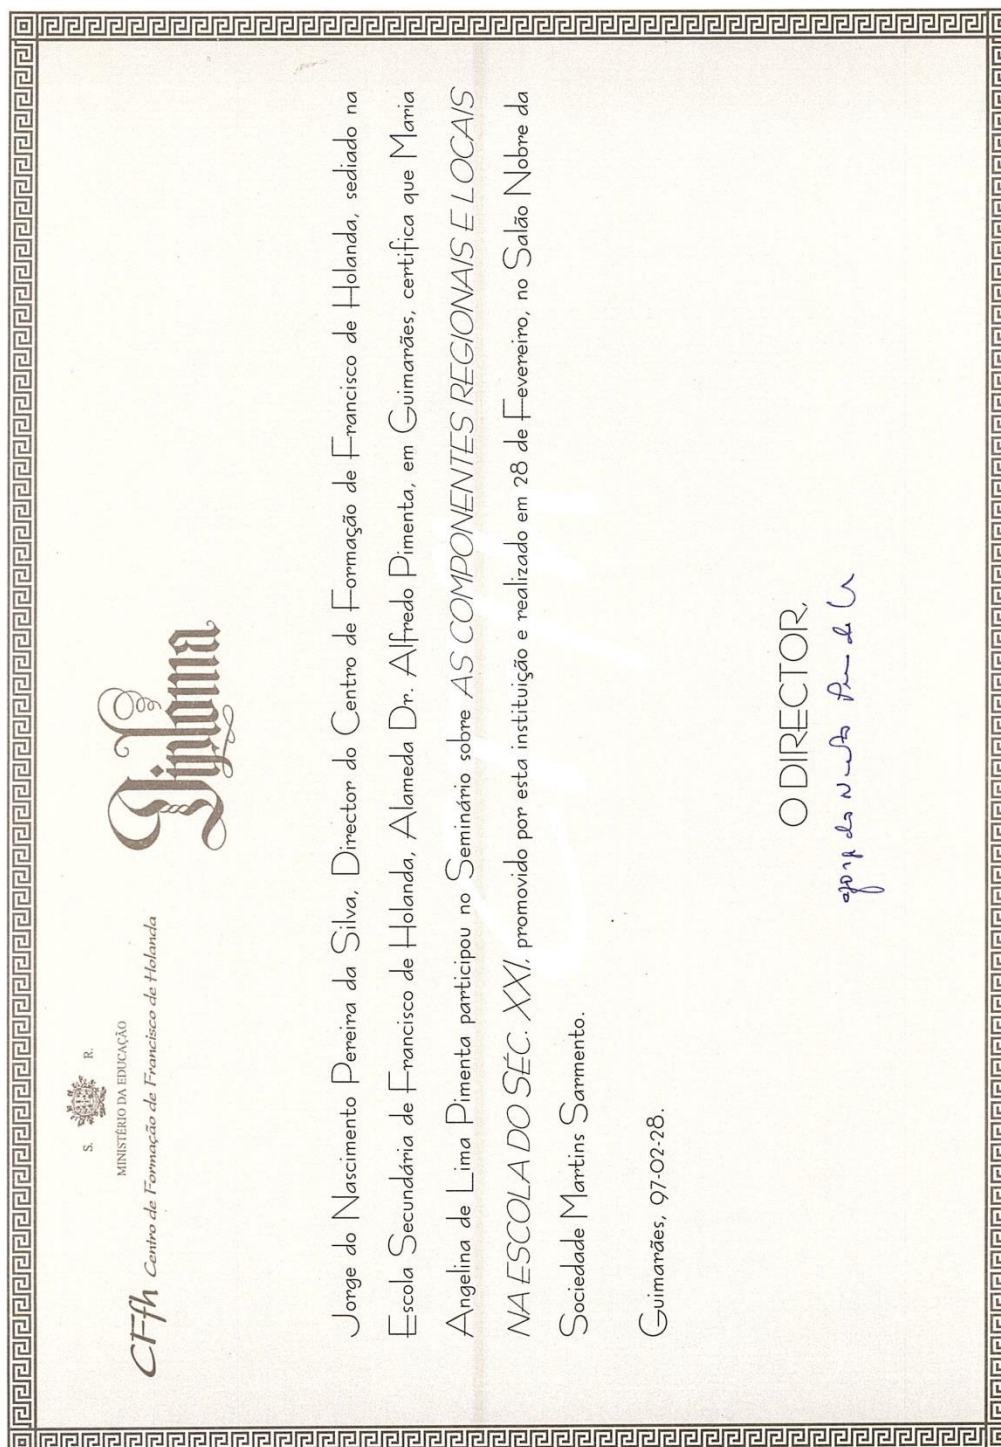 S. R.
MINISTÉRIO DA EDUCAÇÃO
CFfh Centro de Formação de Francisco de Holanda
Diploma
Jorge do Nascimento Pereira da Silva, Director do Centro de Formação de Francisco de Holanda, sediado na
Escola Secundária de Francisco de Holanda, Alameda Dr. Alfredo Pimenta, em Guimarães, certifica que Maria
Angelina de Lima Pimenta participou no Seminário sobre AS COMPONENTES REGIONAIS E LOCAIS
NA ESCOLA DO SÉC. XXI, promovido por esta instituição e realizado em 28 de Fevereiro, no Salão Nobre da
Sociedade Martins Sarmento.
Guimarães, 97-02-28.
O DIRECTOR,